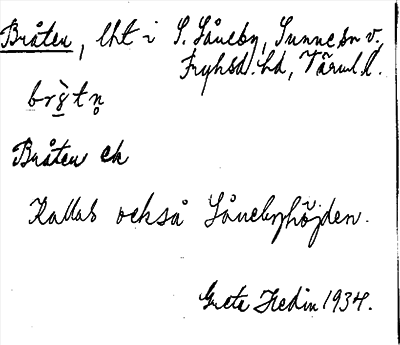 Bråten, lht i S. Låneby, Sunne sn v.,
Fryksd. hd, Värml. l.
Bråten ek
Kallas också Lånebyhöjden.
Greta Hedin 1934.